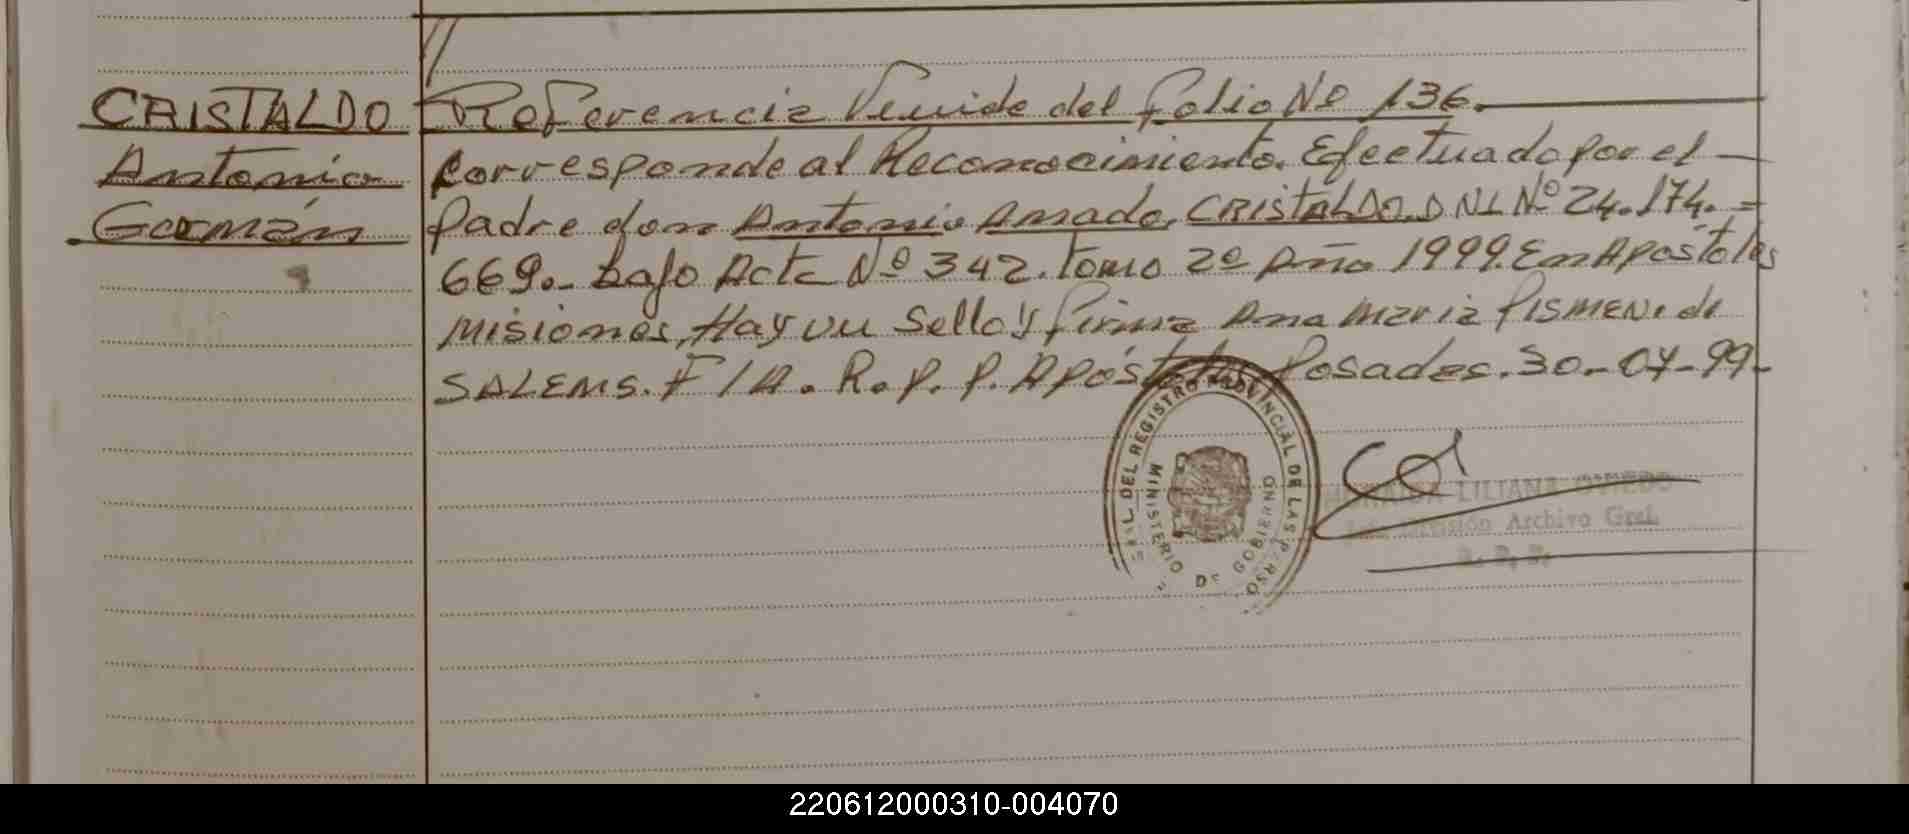 CRISTALDO
Antonio
Germán
Referencia Venida del folio Nº 136.
Corresponde al Reconocimiento. Efectuado por el
Padre don Antonio Amado. CRISTALDO. DNI Nº 24.174.=
669.- bajo Acta Nº 342. Tomo 2º Año 1999. En Apóstoles
Misiones, Hay un Sello y firma Ana Maria PISMENI de
SALEMS. F/A. R.P.P. Apóstoles Posadas. 30-07-99-
DEL REGISTRO PROVINCIAL DE LAS PERSO
MINISTERIO DE GOBIERNO
LILIANA OVIEDO
División Archivo Gral.
R. P. P.
220612000310-004070